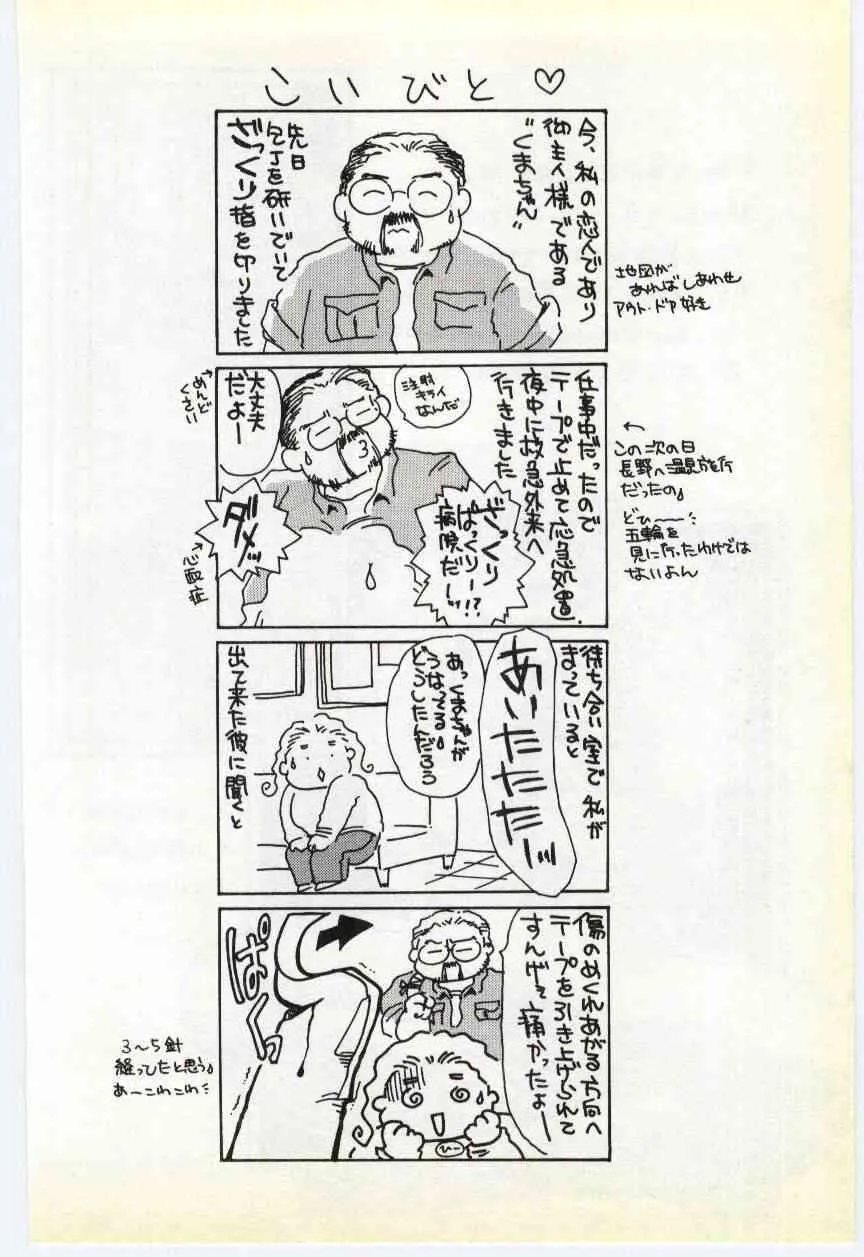 こいびと♡
今、私の恋人であり
御主人様である
“くまちゃん”
先日
包丁を研いでいて
ざっくり指を切りました
地図が
あればしあわせ
アウト・ドア好き
仕事中だったので
テープで止めて応急処置。
夜中に救急外来へ
行きました
注射
キライ
なんだ
大丈夫
だよー
←めんど
くさい
ざっくり
ぱっくりー!?
病院だーッ
ダメッ
←心配症
←
この次の日
長野へ温泉旅行
だったの。
どひ〜〜
五輪を
見に行ったわけでは
ないよん
待ち合い室で私が
まっていると
あいたたたーッ
あっくまちゃんが
うなってる。
どうしたんだろう
出て来た彼に聞くと
傷のめくれあがる方向へ
テープを引き上げられて
すんげェ痛かったよー
ぱくっ
ひー
3〜5針
縫ってたと思う。
あーこわこわ